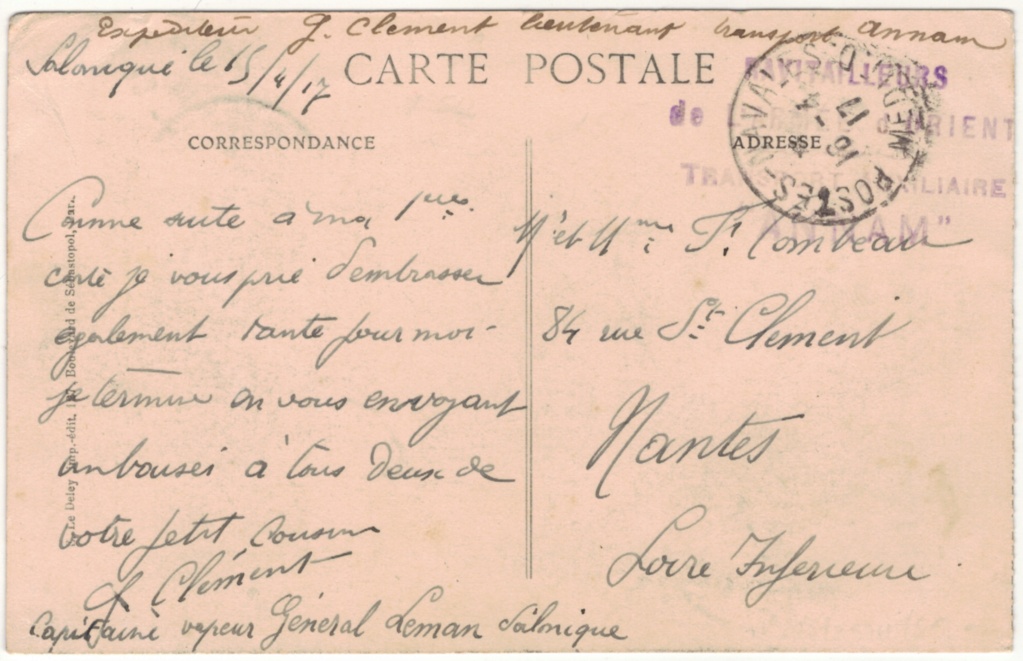 Expediteur G. Clement lieutenant transport Annam
Salonique le 15/4/17
CARTE POSTALE
RAVITAILLEURS
de L'ARMÉE d'ORIENT
TRANSPORT AUXILIAIRE
"ANNAM"
POSTES NAVALES
16 - 4
17
CORRESPONDANCE
ADRESSE
Comme suite à ma 1ère
carte je vous prie d'embrasser
egalement tante pour moi -
je termine en vous envoyant
un bouser à tous deux de
votre petit cousin
G Clément
Capitaine vapeur Général Leman Salonique
Mr et Mme F. Combeau
84 rue St Clement
Nantes
Loire Inferieure
Le Deley imp.-édit. Boulevard de Sébastopol, Paris